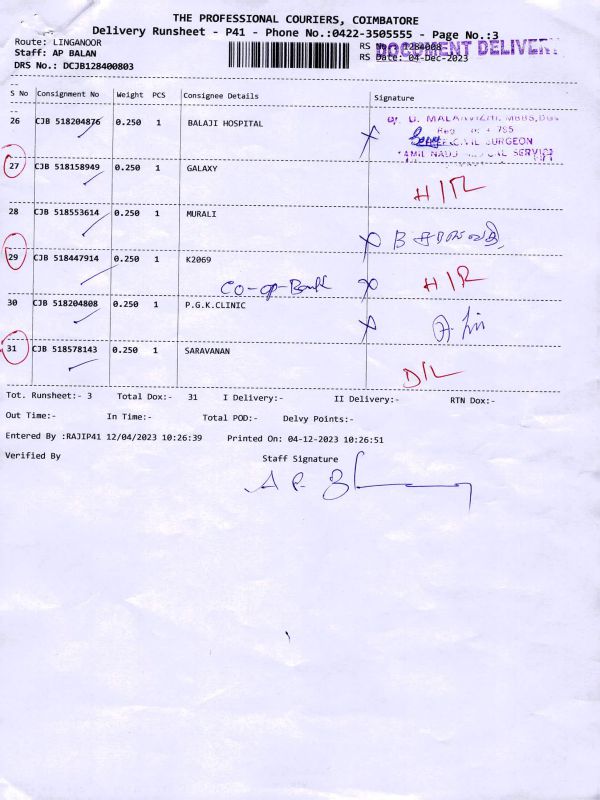 THE PROFESSIONAL COURIERS, COIMBATORE
Delivery Runsheet - P41 - Phone No.:0422-3505555 - Page No.:3
Route: LINGANOOR
RS No: 1284008
DOCUMENT DELIVERY
Staff: AP BALAN
RS Date: 04-Dec-2023
DRS No.: DCJB128400803
S No Consignment No Weight PCS Consignee Details Signature
26 CJB 518204876 0.250 1 BALAJI HOSPITAL
Dr. D. MALARVIZHI, MBBS,
CIVIL SURGEON
TAMIL NADU MEDICAL SERVICE
27 CJB 518158949 0.250 1 GALAXY
28 CJB 518553614 0.250 1 MURALI
29 CJB 518447914 0.250 1 K2069
Co-op-Bank
30 CJB 518204808 0.250 1 P.G.K.CLINIC
31 CJB 518578143 0.250 1 SARAVANAN
D/L
Tot. Runsheet:- 3 Total Dox:- 31 I Delivery:- II Delivery:- RTN Dox:-
Out Time:- In Time:- Total POD:- Delvy Points:-
Entered By :RAJIP41 12/04/2023 10:26:39 Printed On: 04-12-2023 10:26:51
Verified By Staff Signature